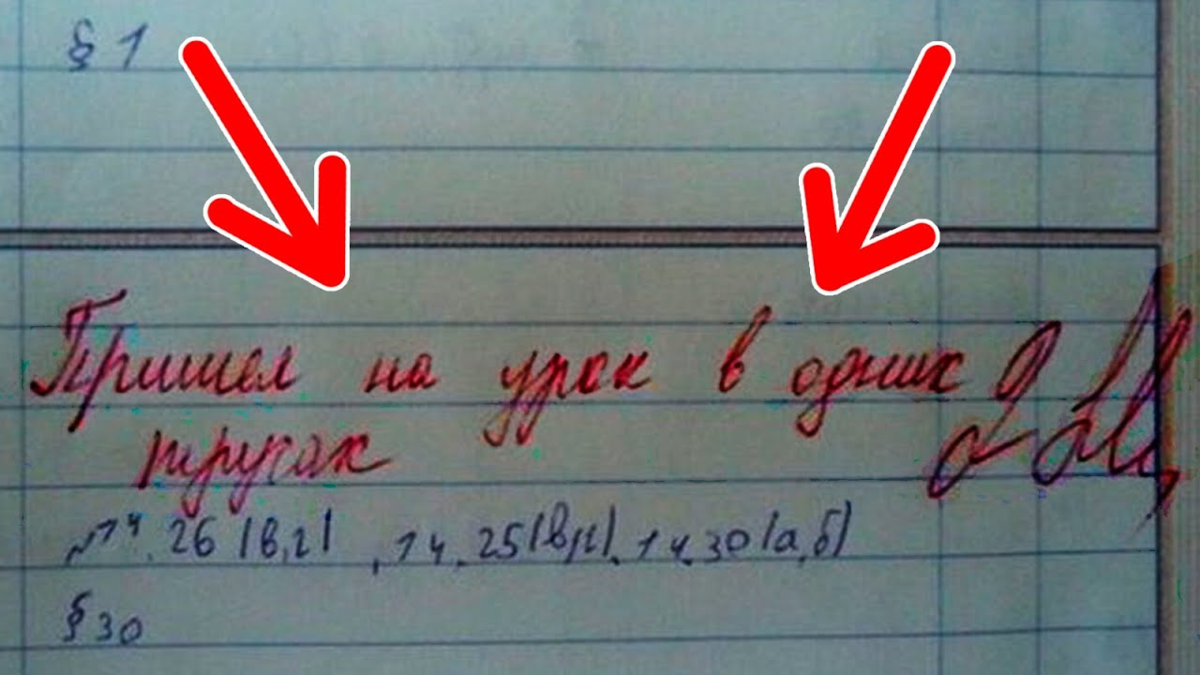 § 1
Пришел на урок в одних 2
трусах
№14.26 (в,г), 14.25(в,г), 14.30(а,б)
§ 30